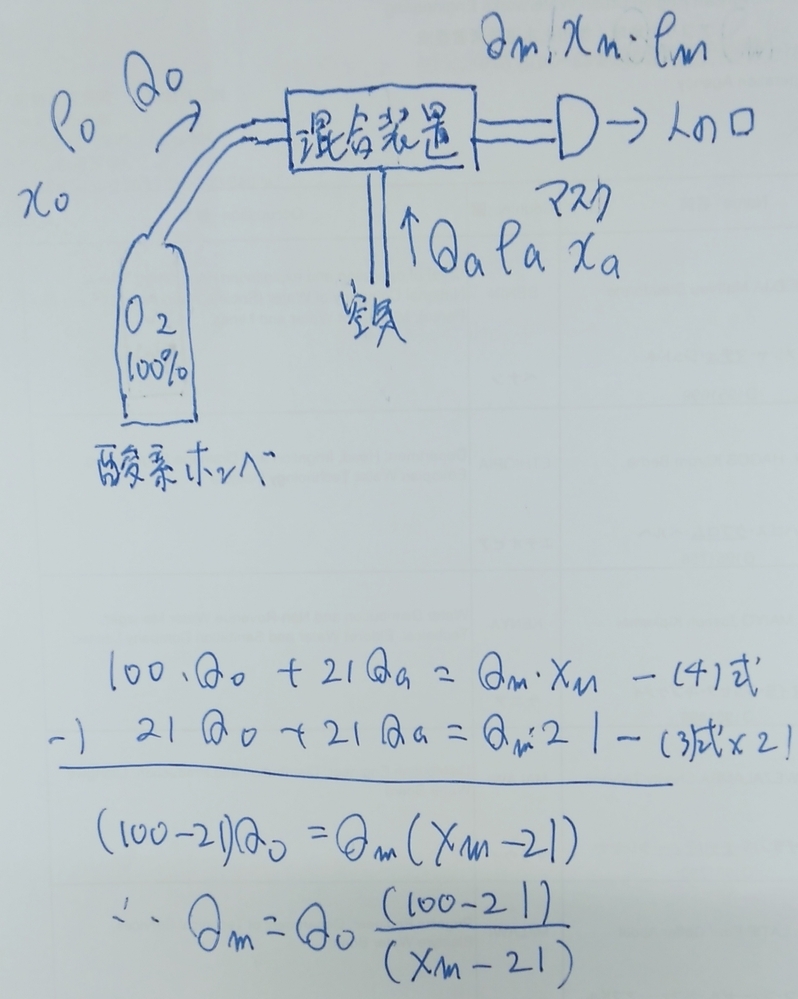 Qm, xm・ρm
ρo Qo
xo
混合装置
→ 人の口
マスク
↑ Qa ρa xa
空気
O2
100%
酸素ボンベ
100・Qo + 21Qa = Qm・xm - (4)式
-) 21Qo + 21Qa = Qm・21 - (3)式×21
(100-21)Qo = Qm(xm-21)
∴ Qm = Qo (100-21)/(xm-21)